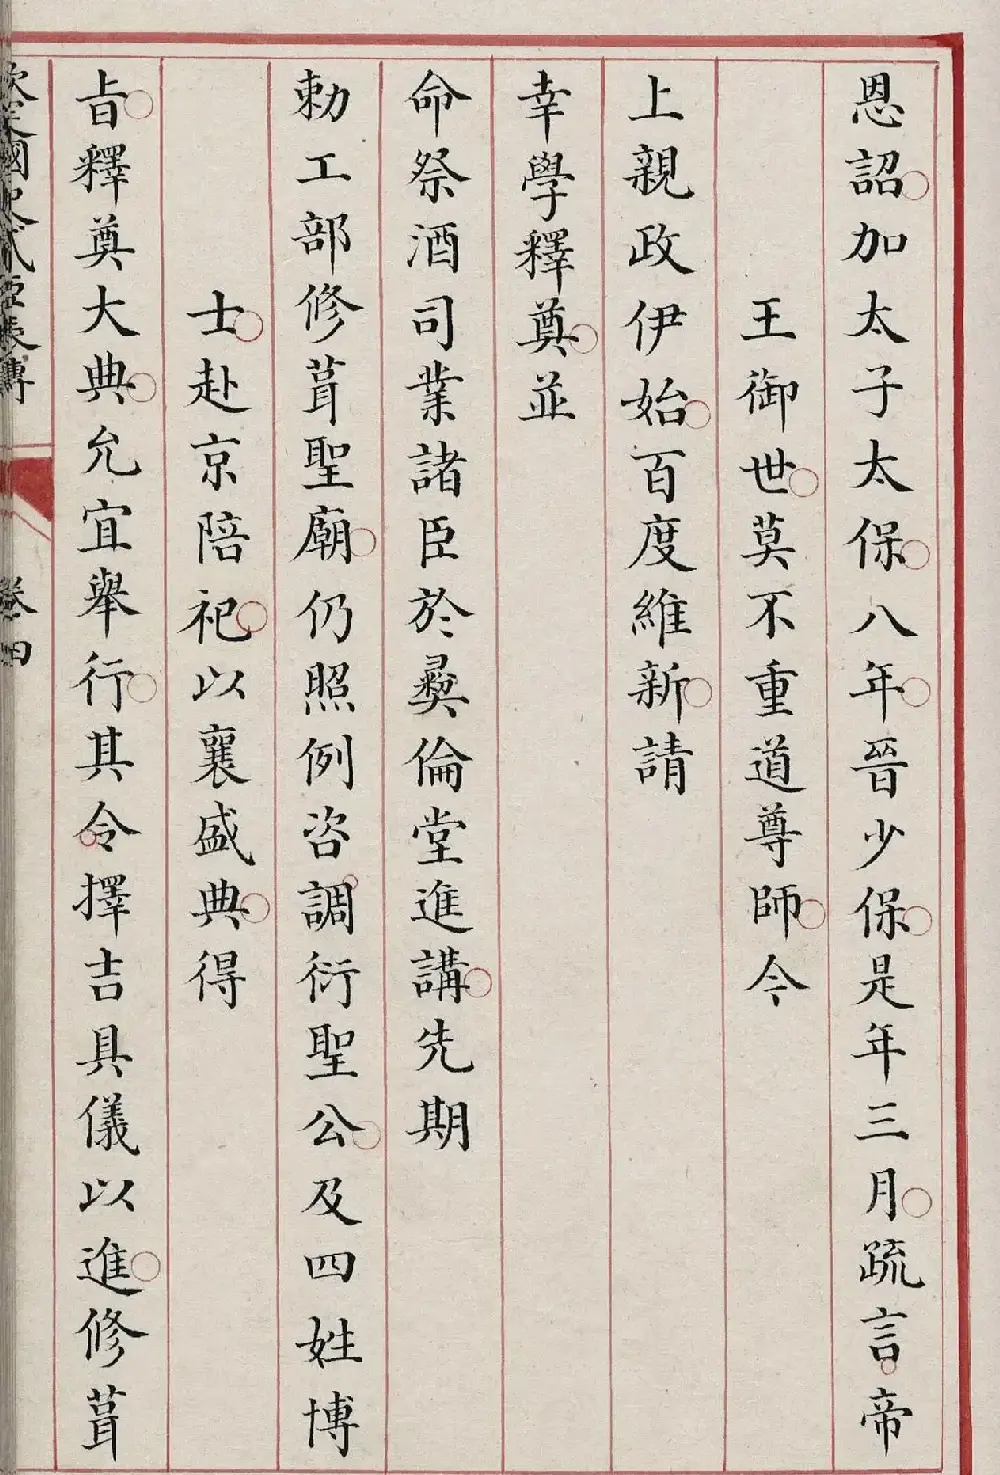 恩詔加太子太保八年晉少保是年三月疏言帝
王御世莫不重道尊師今
上親政伊始百度維新請
幸學釋奠並
命祭酒司業諸臣於彞倫堂進講先期
勅工部修葺聖廟仍照例咨調衍聖公及四姓博
士赴京陪祀以襄盛典得
旨釋奠大典允宜舉行其令擇吉具儀以進修葺
欽定國史貳臣表傳
卷四